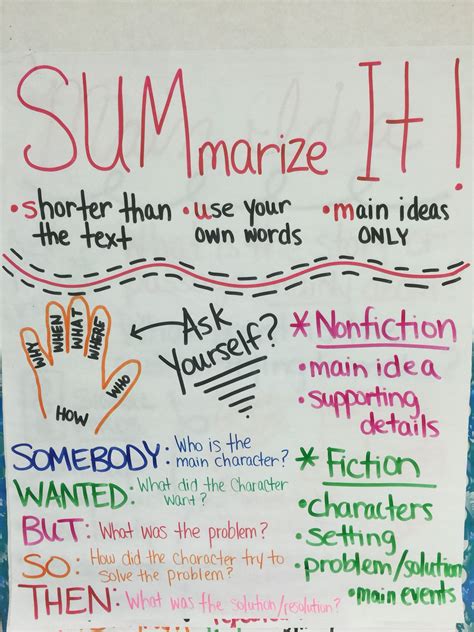 SUMmarize It!
•shorter than the text
•use your own words
•main ideas ONLY
WHY
WHEN
WHAT
WHERE
WHO
HOW
Ask Yourself?
*Nonfiction
•main idea
•supporting details
SOMEBODY: Who is the main character?
WANTED: What did the Character Want?
BUT: What was the problem?
SO: How did the character try to solve the problem?
THEN: What was the solution/resolution?
*Fiction
•characters
•setting
•problem/solution
•main events